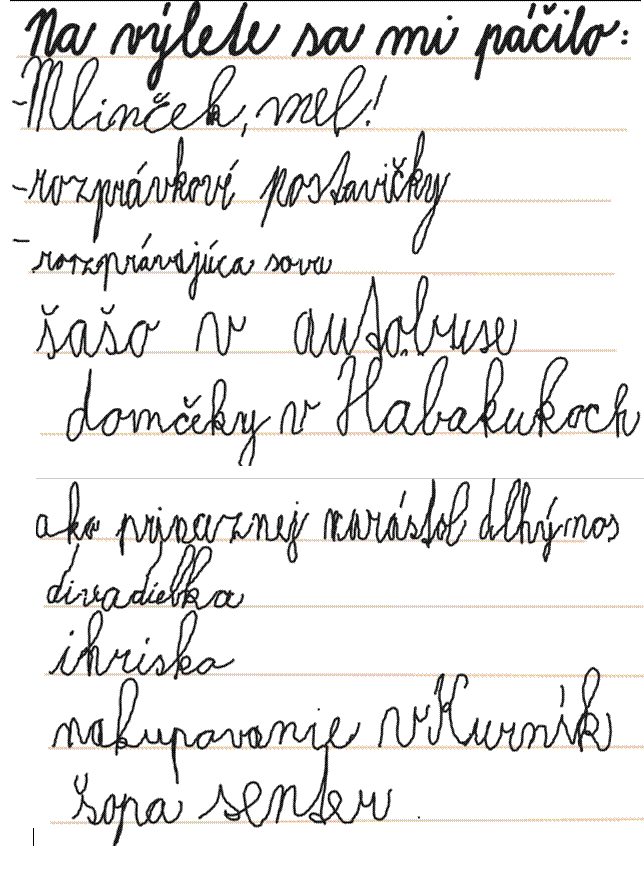 Na výlete sa mi páčilo:
-Mlinček, mel!
-rozprávkové postavičky
-rozprávajúca sova
šašo v autobuse
domčeky v Habakukoch
ako prípaznej narástol dlhý nos
divadielka
ihriska
nakupavanie v Kurník
šopa senter